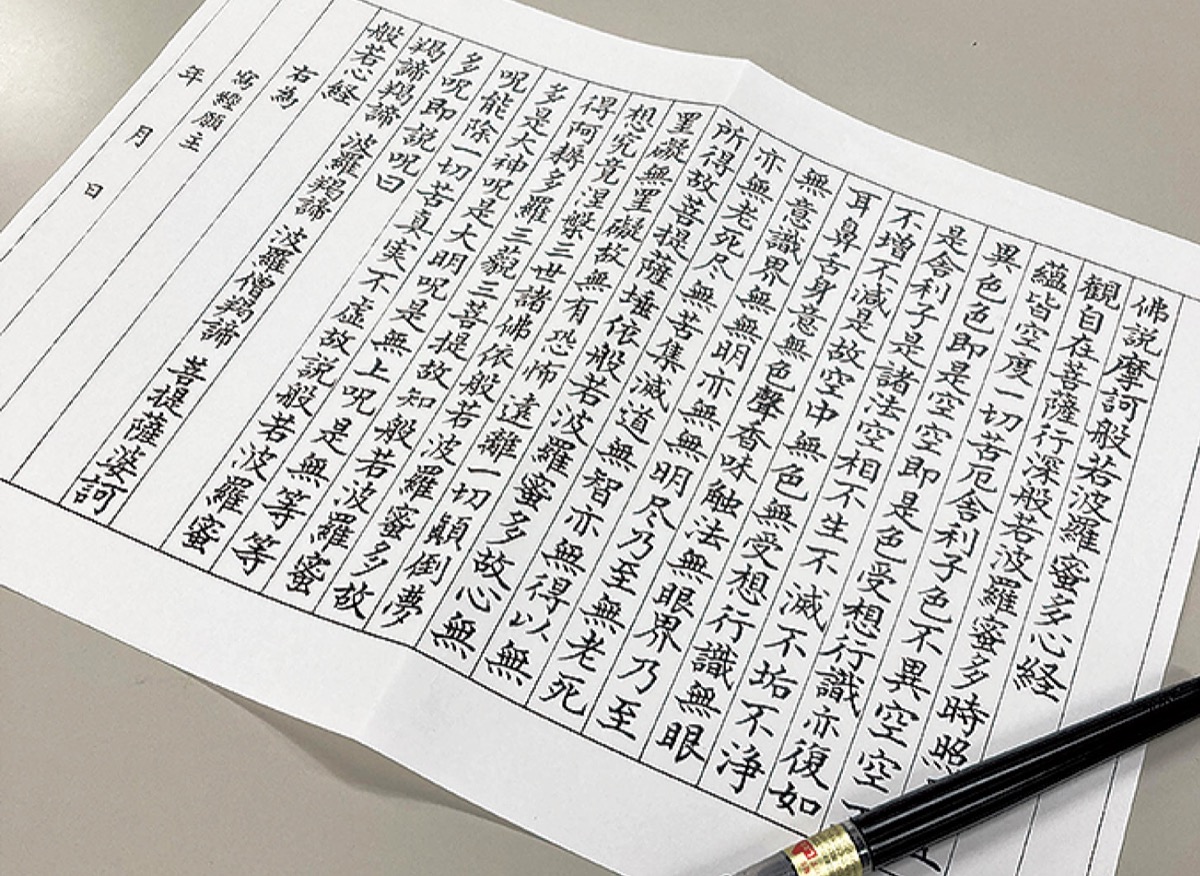 佛説摩訶般若波羅蜜多心経
観自在菩薩行深般若波羅蜜多時照
蘊皆空度一切苦厄舍利子色不異空空
異色色即是空空即是色受想行識亦復如
是舍利子是諸法空相不生不滅不垢不浄
不増不減是故空中無色無受想行識無眼
耳鼻舌身意無色聲香味触法無眼界乃至
無意識界無無明亦無無明尽乃至無老死
亦無老死尽無苦集滅道無智亦無得以無
所得故菩提薩埵依般若波羅蜜多故心無
罣礙無罣礙故無有恐怖遠離一切顛倒夢
想究竟涅槃三世諸佛依般若波羅蜜多故
得阿耨多羅三藐三菩提故知般若波羅蜜
多是大神呪是大明呪是無上呪是無等等
呪能除一切苦真実不虚故説般若波羅蜜
多呪即説呪曰
羯諦羯諦 波羅羯諦 波羅僧羯諦 菩提薩婆訶
般若心経
右為
寫經願主
年 月 日